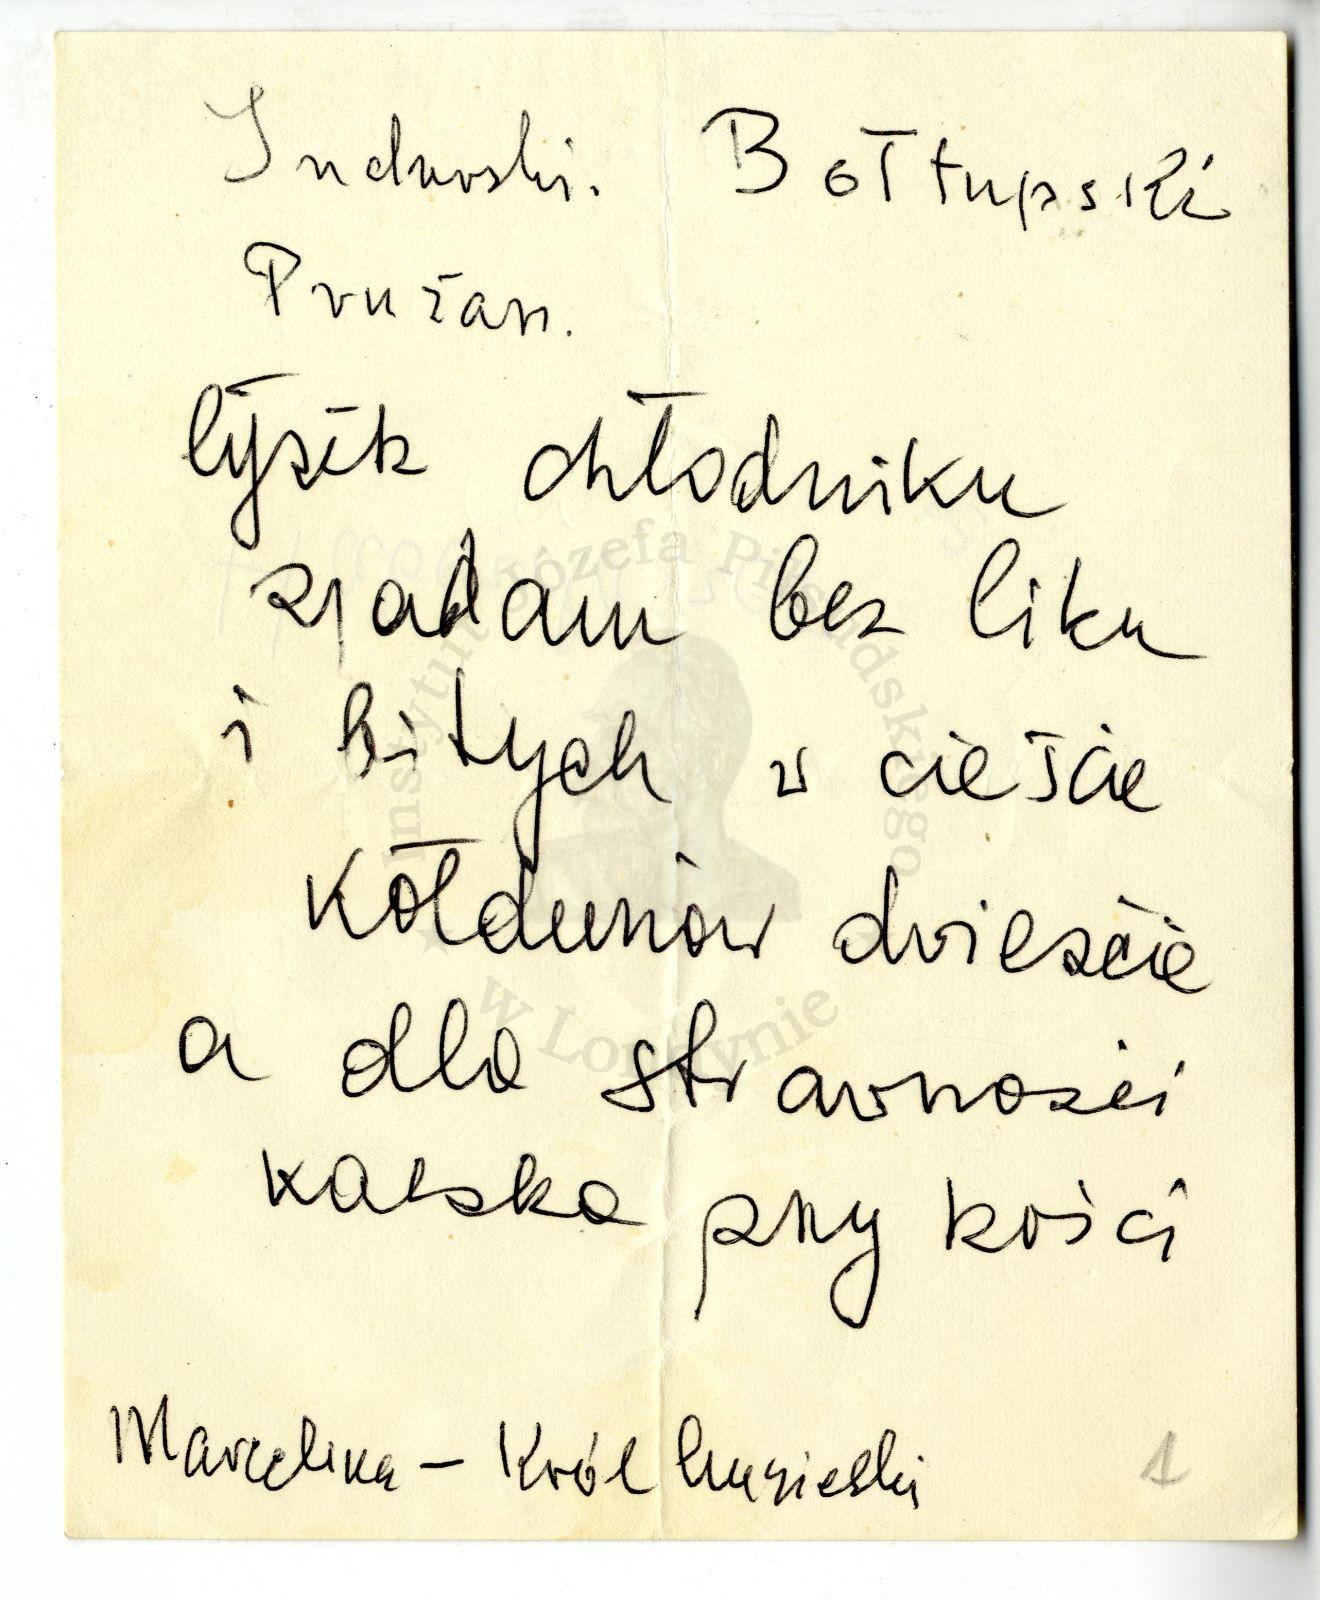 Indurski. Bołtupski
Prużan.
łyżek chłodniku
zjadam bez liku
i bitych w cieście
kołdunów dwieście
a dla strawności
kaczka przy kości
Marcelina – Król
1
Instytut Józefa Piłsudskiego
w Londynie